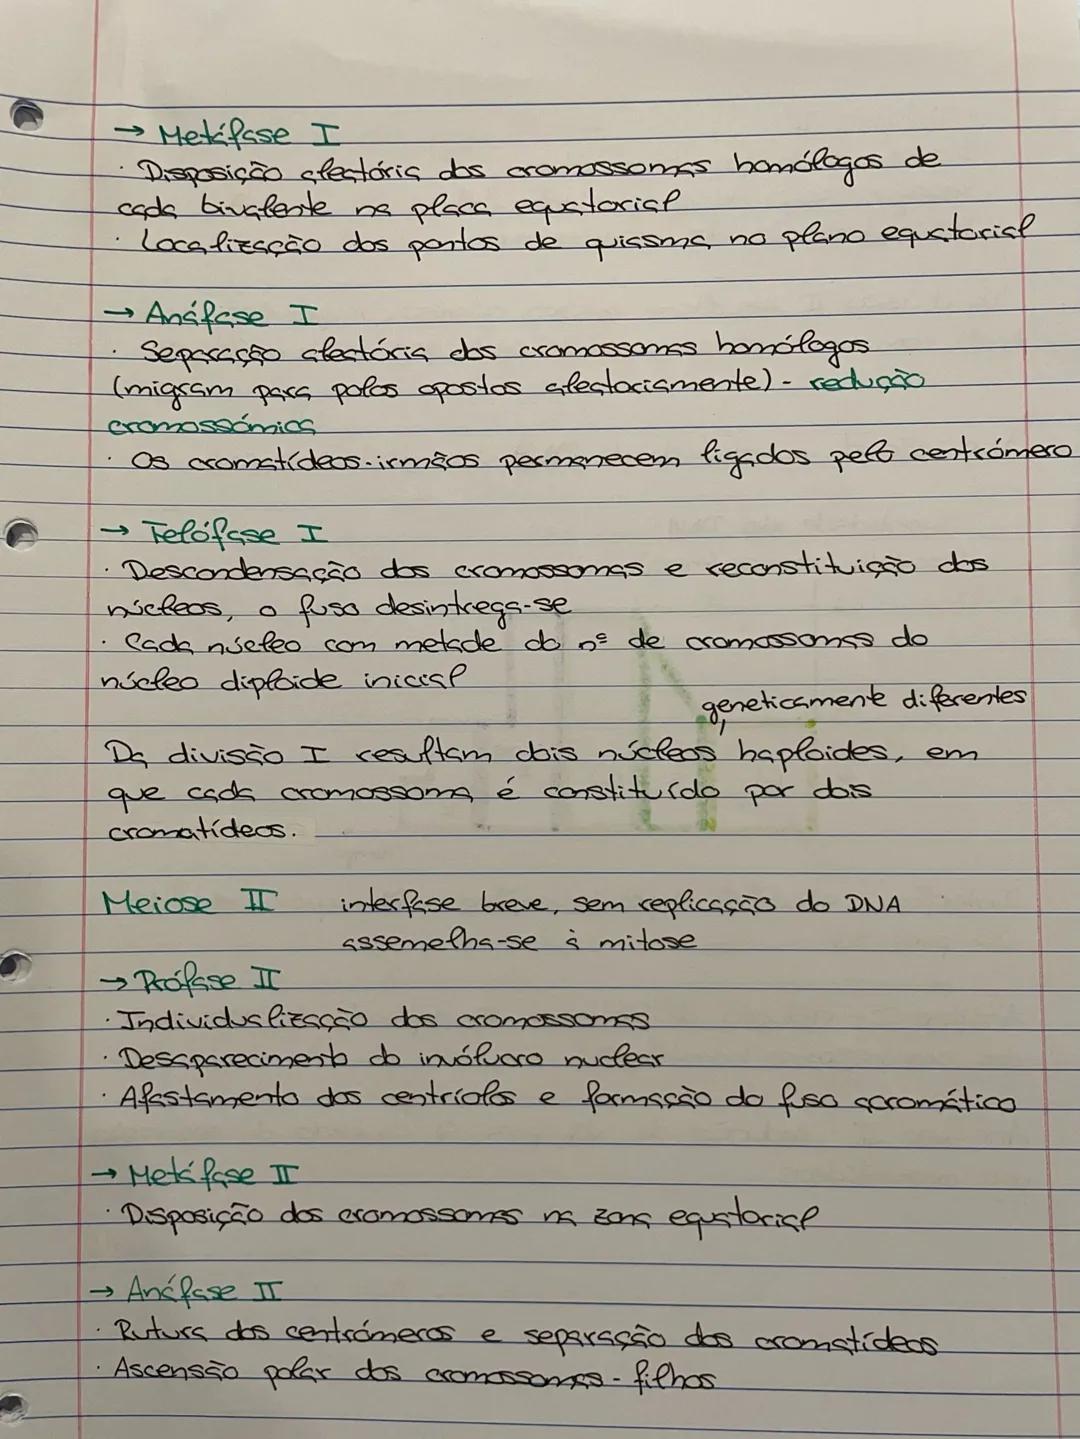 → Metáfase I
· Disposição aleatória dos cromossomas homólogos de
cada bivalente na placa equatorial
· Localização dos pontos de quiasma no plano equatorial
→ Anáfase I
· Separação aleatória dos cromossomas homólogos
(migram para polos opostos aleatoriamente) - redução
cromossómica
· Os cromatídeos-irmãos permanecem ligados pelo centrómero
→ Telófase I
· Descondensação dos cromossomas e reconstituição dos
núcleos, o fuso desintrega-se
· Cada núcleo com metade do nº de cromossomas do
núcleo diploide inicial
geneticamente diferentes
Da divisão I resultam dois núcleos, haploides, em
que cada cromossoma é constituído por dois
cromatídeos.
Meiose II interfase breve, sem replicação do DNA
assemelha-se à mitose
→ Prófase II
· Individualização dos cromossomas
· Desaparecimento do invólucro nuclear
· Afastamento dos centríolos e formação do fuso acromático
→ Metáfase II
· Disposição dos cromossomas na zona equatorial
→ Anáfase II
· Rutura dos centrómeros e separação dos cromatídeos
· Ascensão polar dos cromossomas-filhos